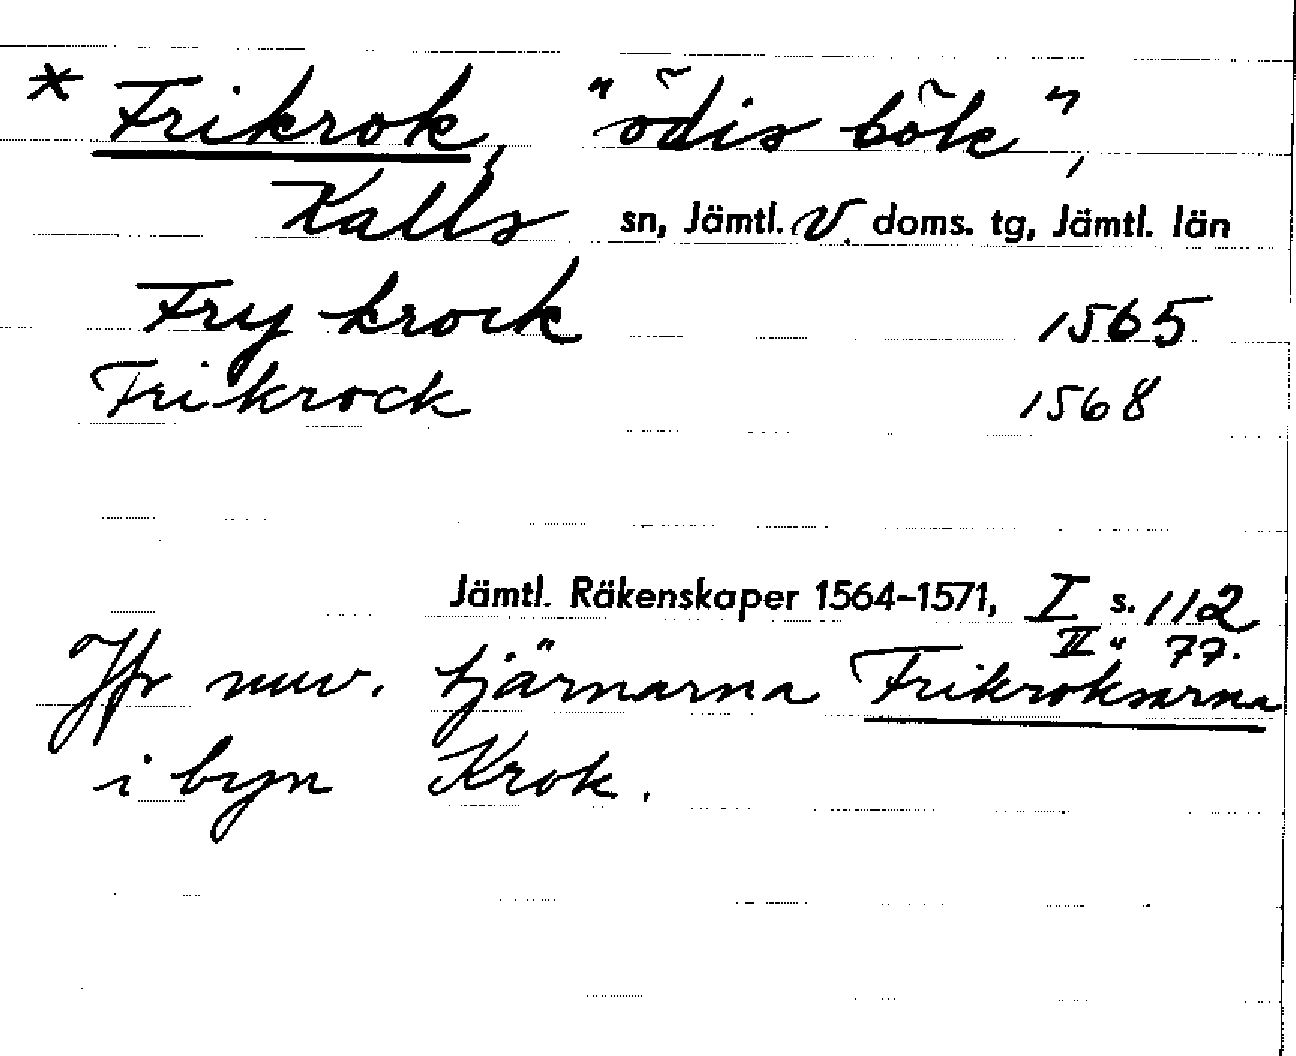 * Frikrok, "ödis bök",
Kalls sn, Jämtl. V. doms. tg, Jämtl. län
Fry krock 1565
Frikrock 1568
Jämtl. Räkenskaper 1564–1571, I s. 112
II " 77.
Jfr nuv. tjärnarna Frikroksarna
i byn Krok.